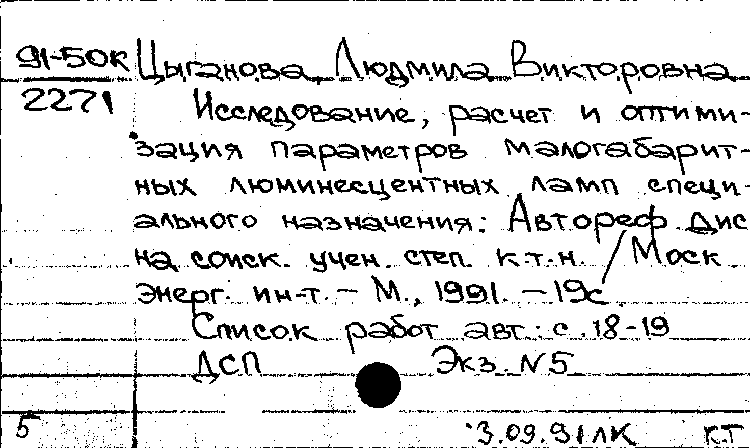 91-50К Цыганова, Людмила Викторовна
2271
Исследование, расчет и оптими-
зация параметров малогабарит-
ных люминесцентных ламп специ-
ального назначения: Автореф. дис
на соиск. учен. степ. к.т.н. / Моск
энерг. ин-т. – М., 1991. – 19с
Список работ авт.: с. 18-19
ДСП Экз. N5
5 3.09.91 ЛК КТ